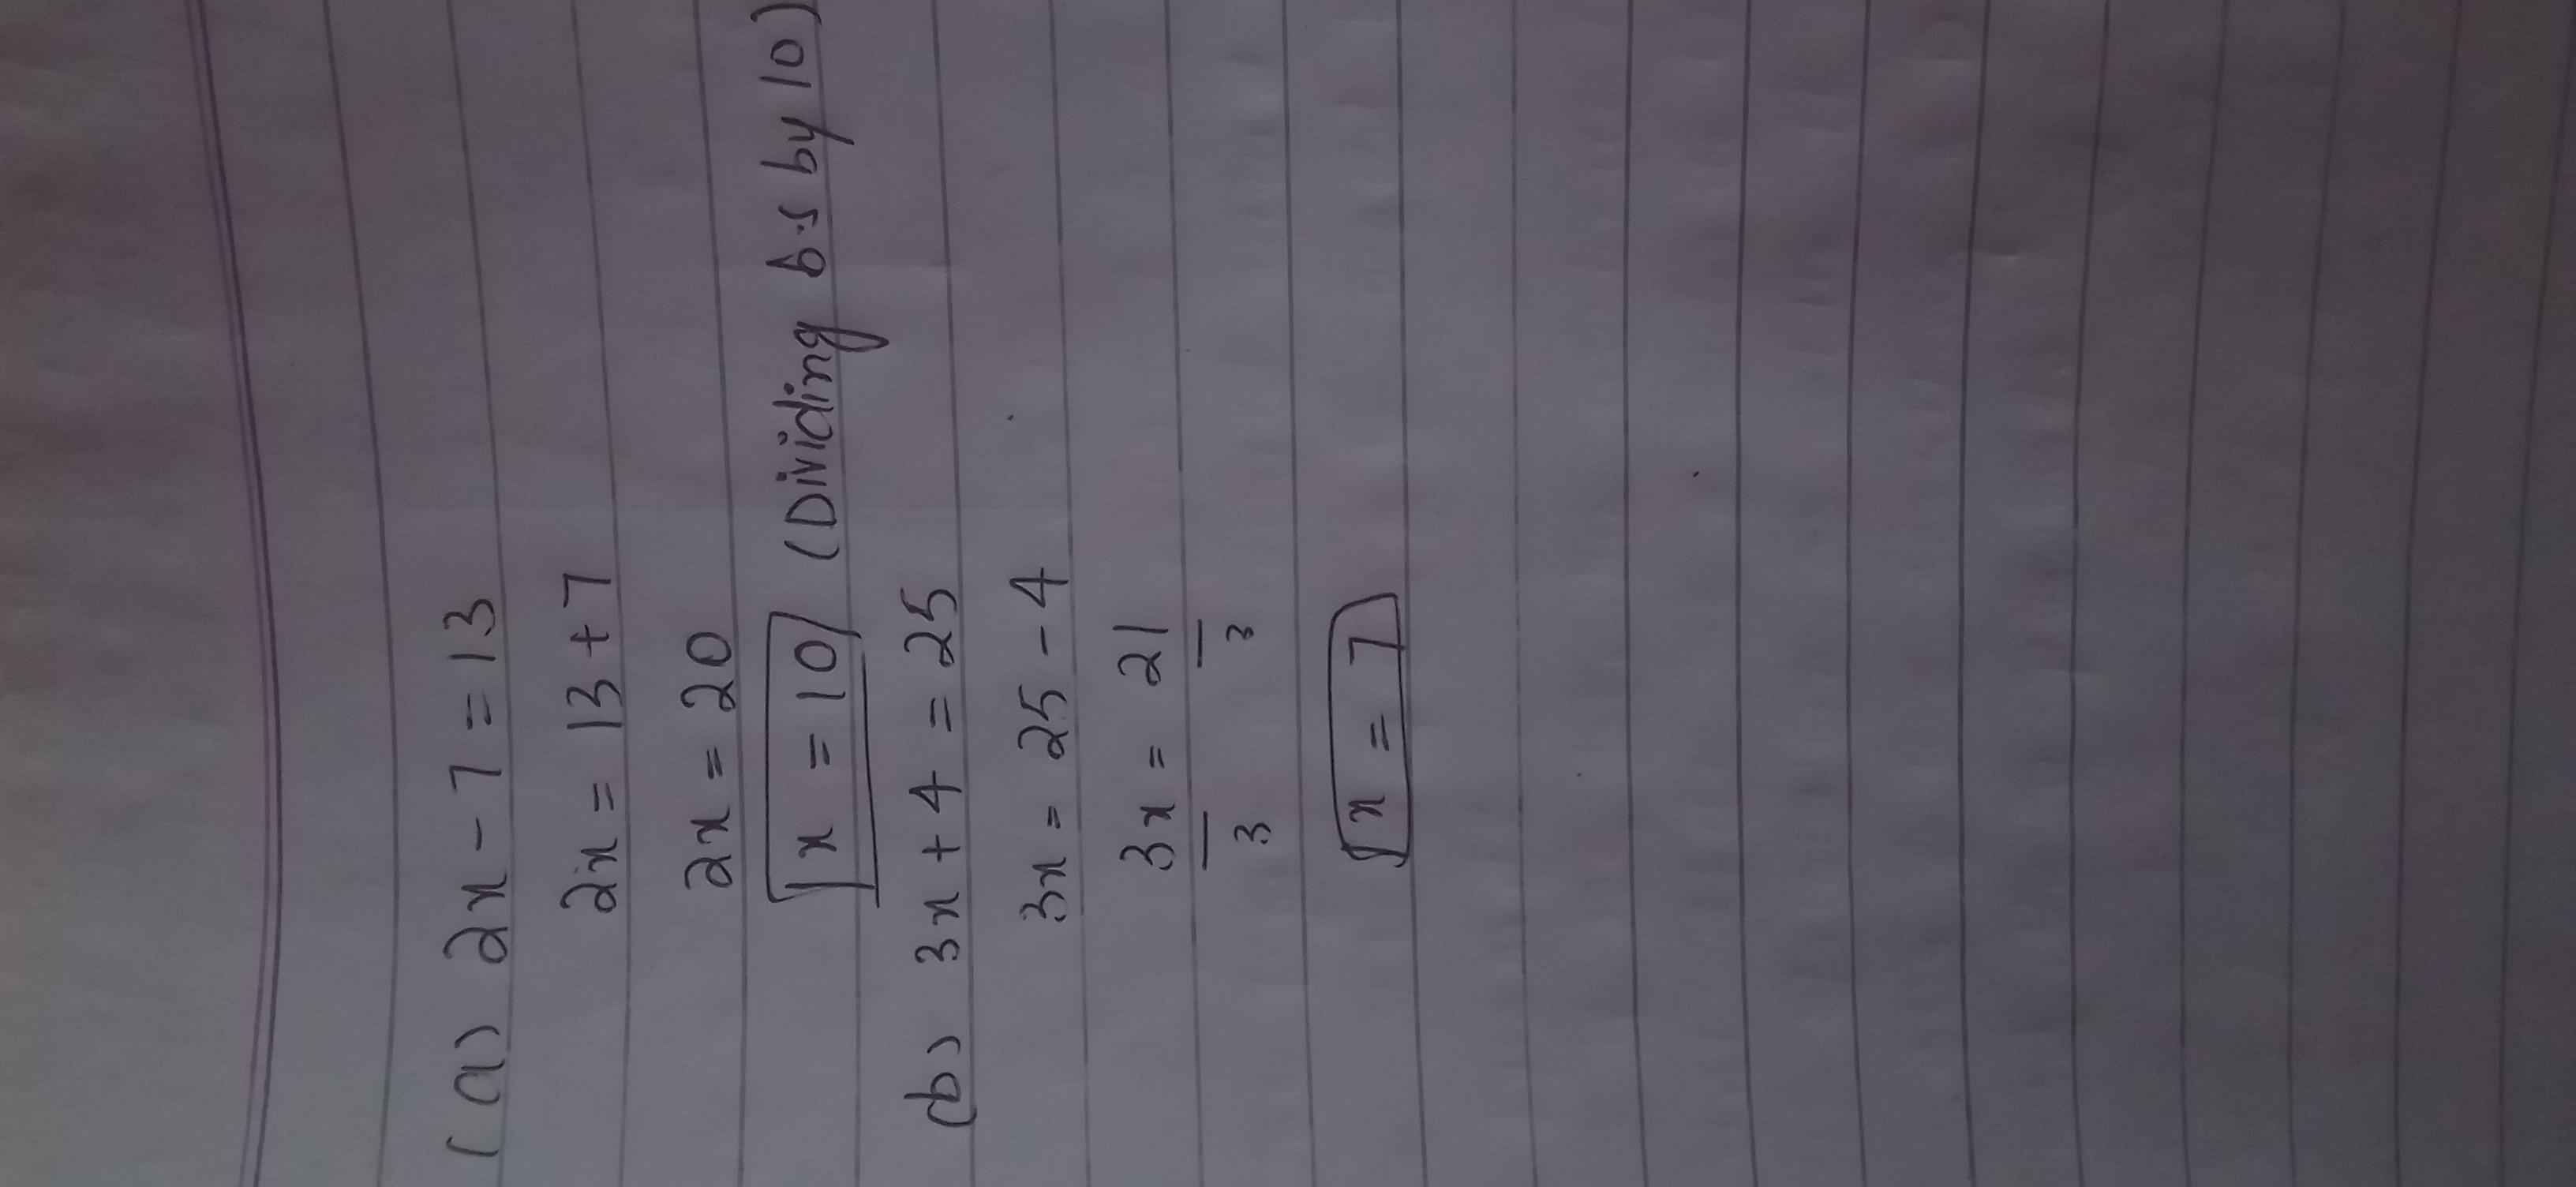 (a) 2x - 7 = 13
2x = 13 + 7
2x = 20
x = 10 (Dividing b.s by 10)
(b) 3x + 4 = 25
3x = 25 - 4
3x = 21
3 3
x = 7